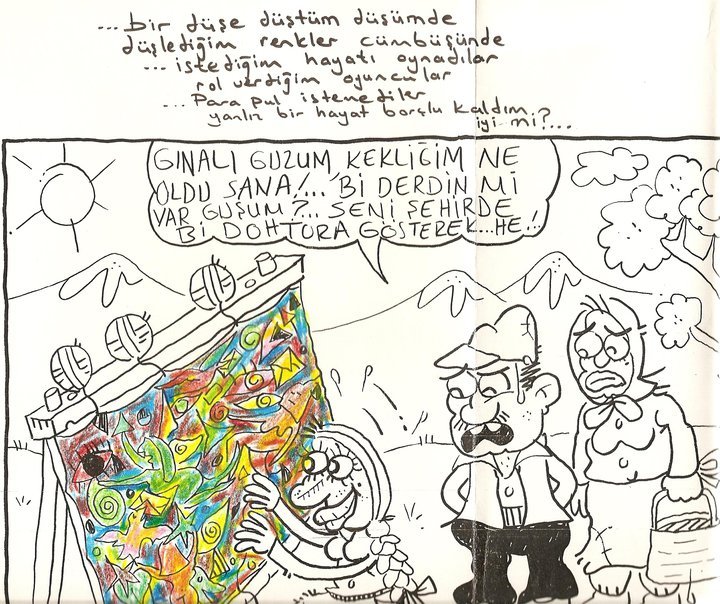 ...bir düşe düştüm düşümde
düşlediğim renkler cümbüşünde
...istediğim hayatı oynadılar
rol verdiğim oyuncular
...Para pul istemediler
yanlız bir hayat borçlu kaldım.
iyi mi?...
GINALI GUZUM KEKLİĞİM NE
OLDU SANA!... 'Bİ DERDİN Mİ
VAR GUŞUM?... SENİ ŞEHİRDE
Bİ DOHTURA GÖSTEREK...HE!..